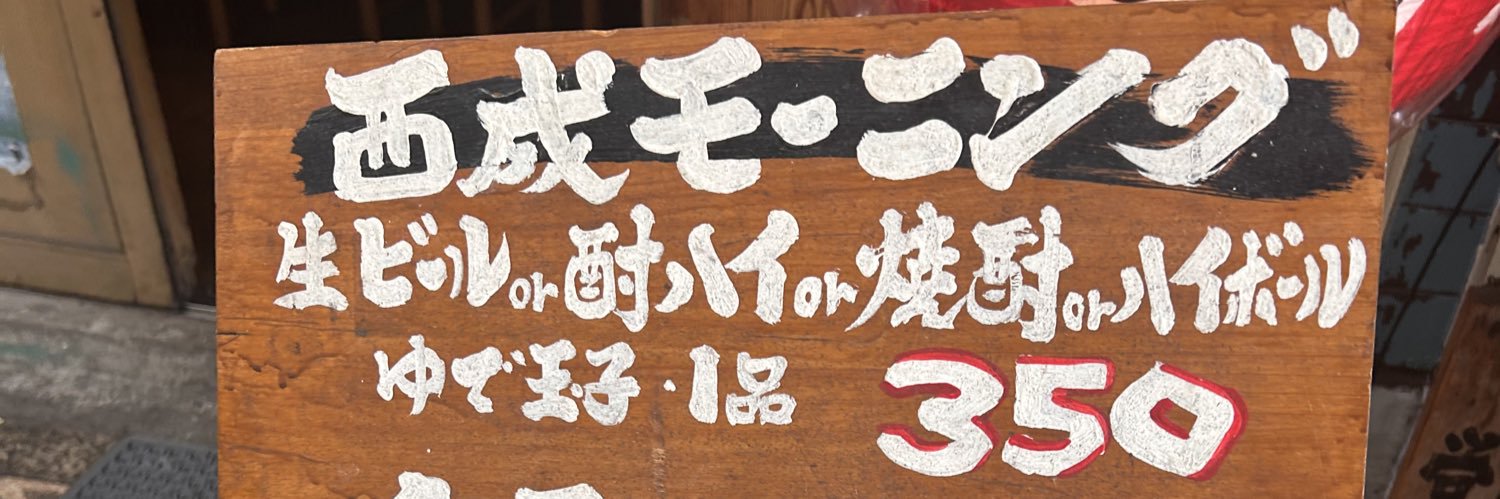 西成モーニング
生ビールor酎ハイor焼酎orハイボール
ゆで玉子・1品 350